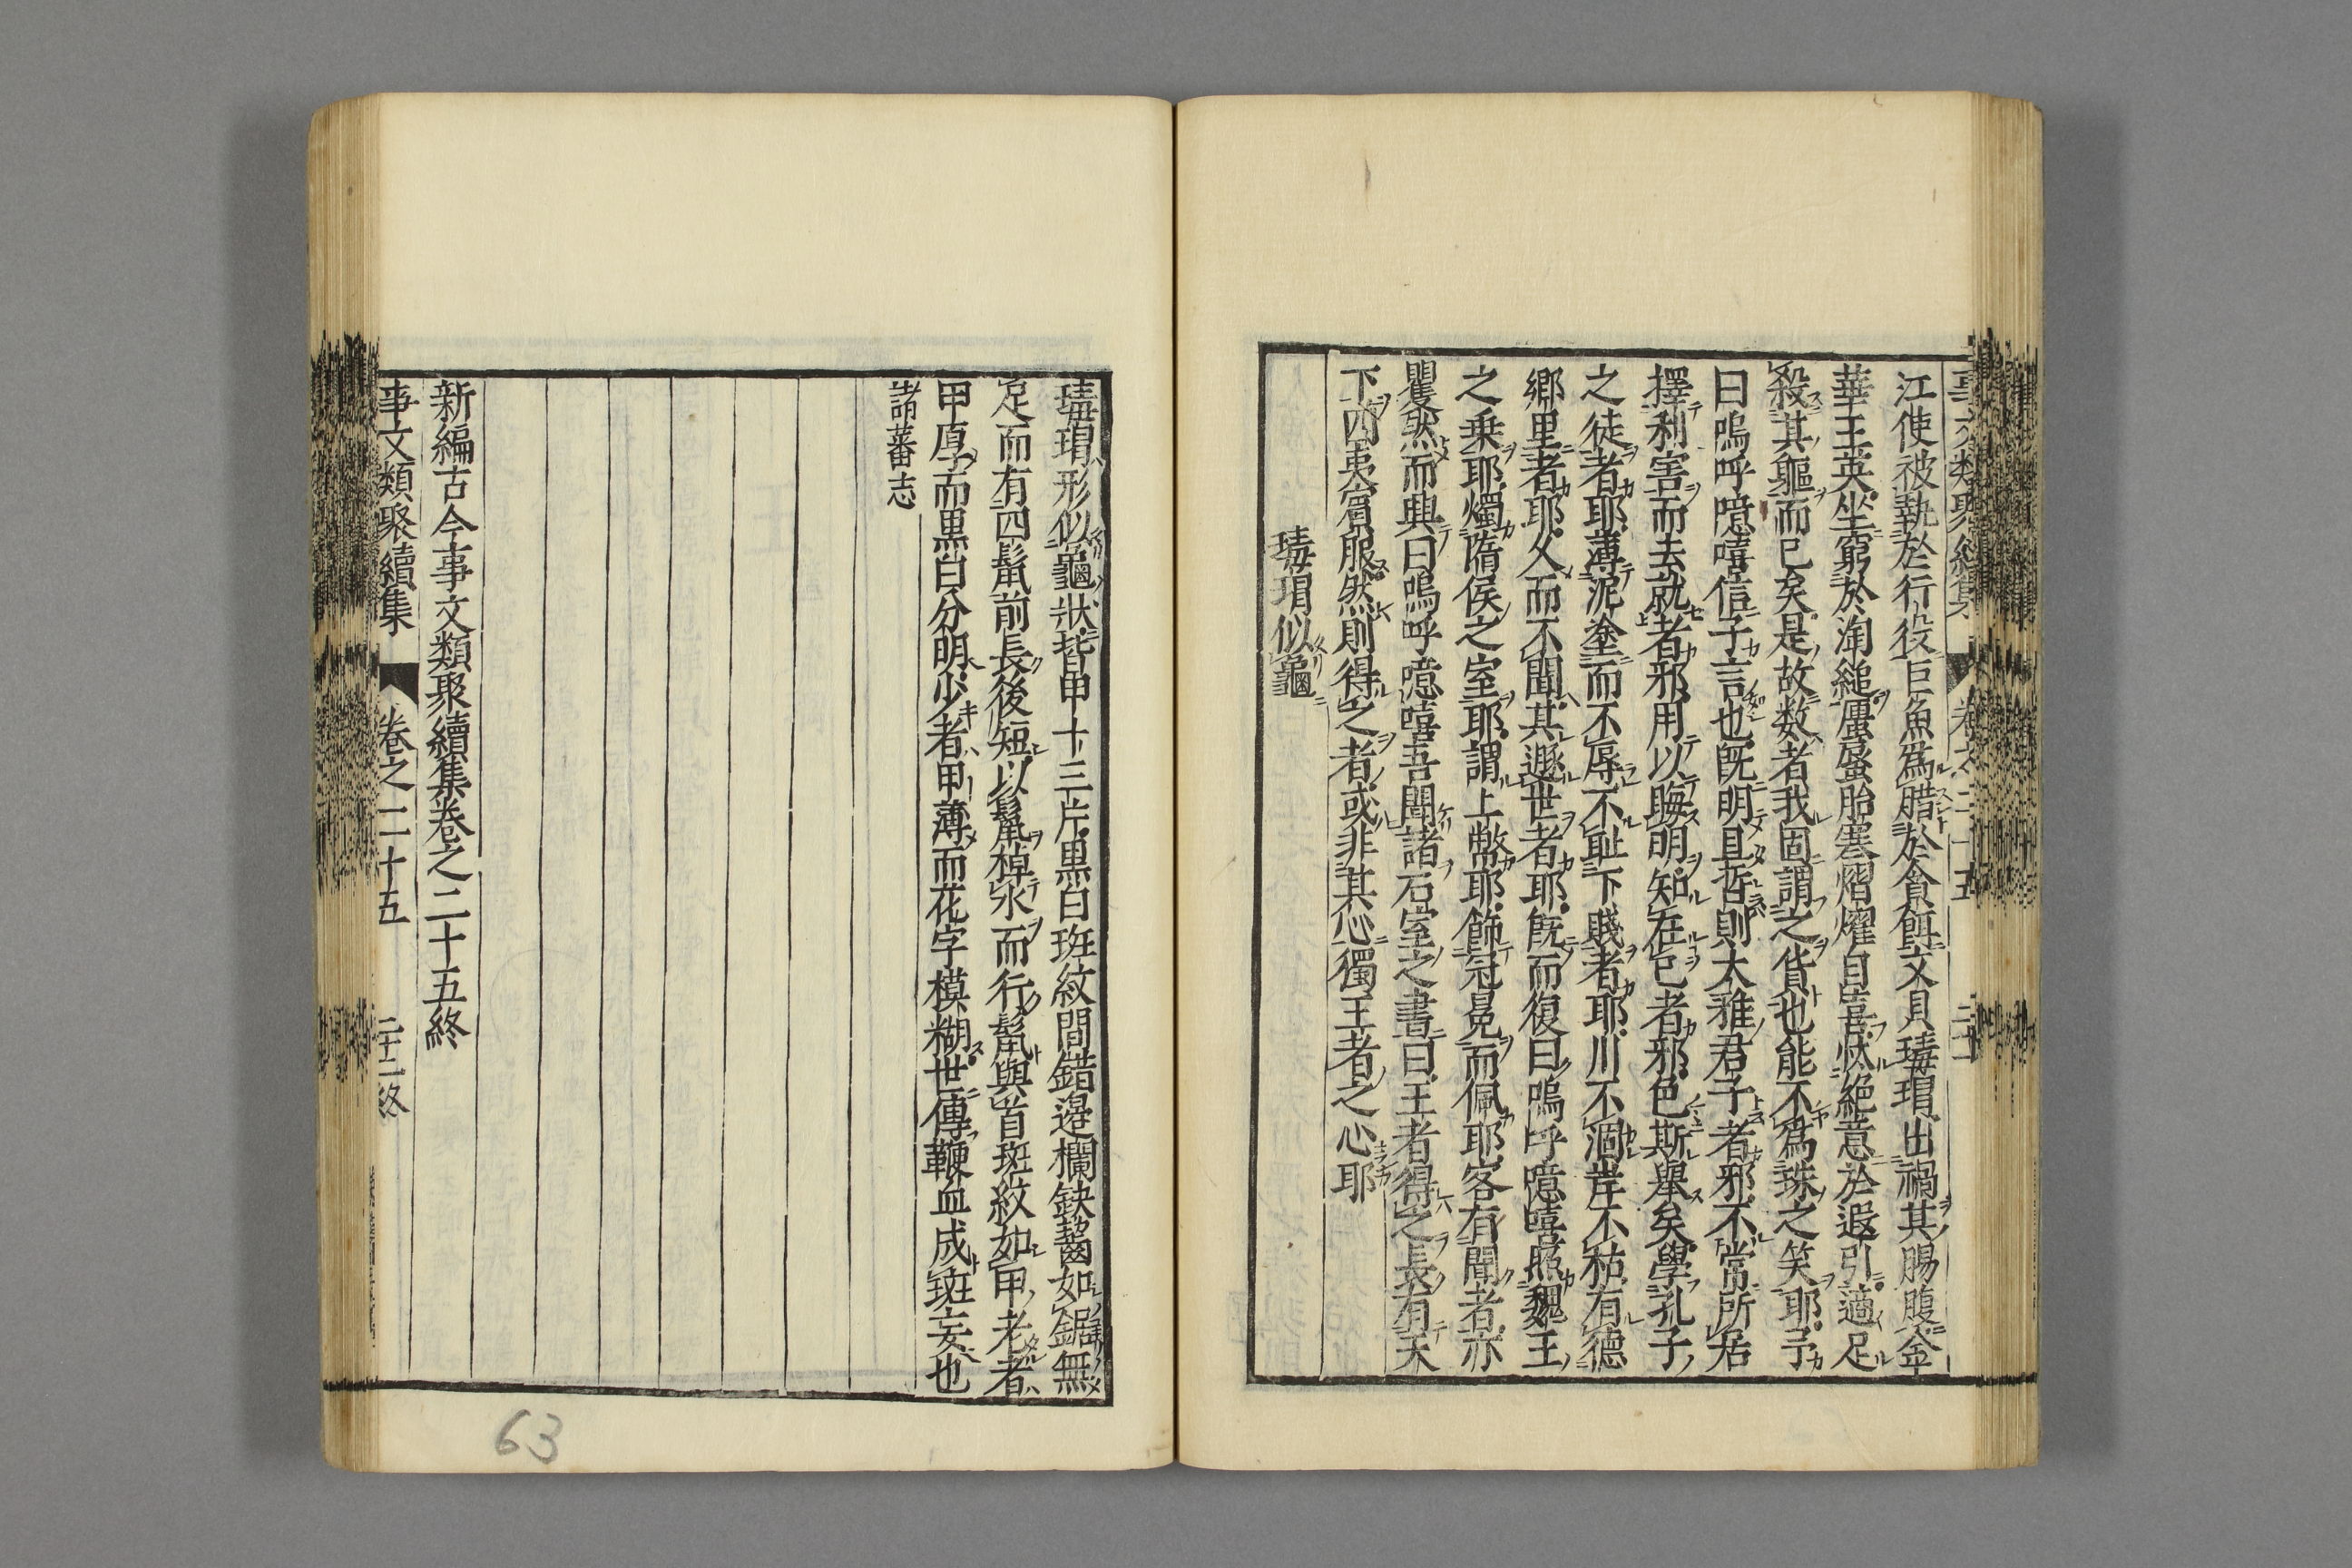 江使被執於行役巨魚爲腊於貪餌文貝瑇瑁出禍其腸腹金
華王英坐窮於淘縋蠯蜃胎寒熠燿自喜怵絶意於遐引適足
殺其軀而已矣是故数者我固謂之貨也能不爲珠之笑耶予
曰嗚呼噫嘻信子言也旣明且哲則大雅君子者邪不常所居
擇利害而去就者邪用以晦明知在已者邪色斯舉矣學孔子
之徒者耶薄泥塗而不辱不耻下賤者耶川不涸岸不枯有德
鄉里者耶久而不聞其遯世者耶旣而復曰嗚呼噫嘻照魏王
之乗耶燭隋侯之室耶謂上幣耶飾冠冕而佩耶客有聞者亦
瞿然而興曰嗚呼噫嘻吾聞諸石室之書曰王者得之長有天
下四夷賓服然則得之者或非其心獨王者之心耶
瑇瑁似龜
瑇瑁形似龜狀背甲十三片黒白斑紋間錯邉欄缺齧如鋸無
足而有四鬛前長後短以鬛棹水而行鬛與首斑紋如甲老者
甲厚而黒白分明少者甲薄而花字模糊世傳鞭血成斑妄也
諸蕃志
新編古今事文類聚續集卷之二十五終
事文類聚續集 卷之二十五 二十二終
63